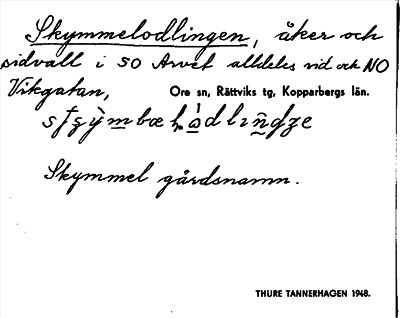 Skymmelodlingen, åker och
sidvall i SO Arvet alldeles vid och NO
Vikgatan, Ore sn, Rättviks tg, Kopparbergs län.
Skymmel gårdsnamn.
THURE TANNERHAGEN 1948.